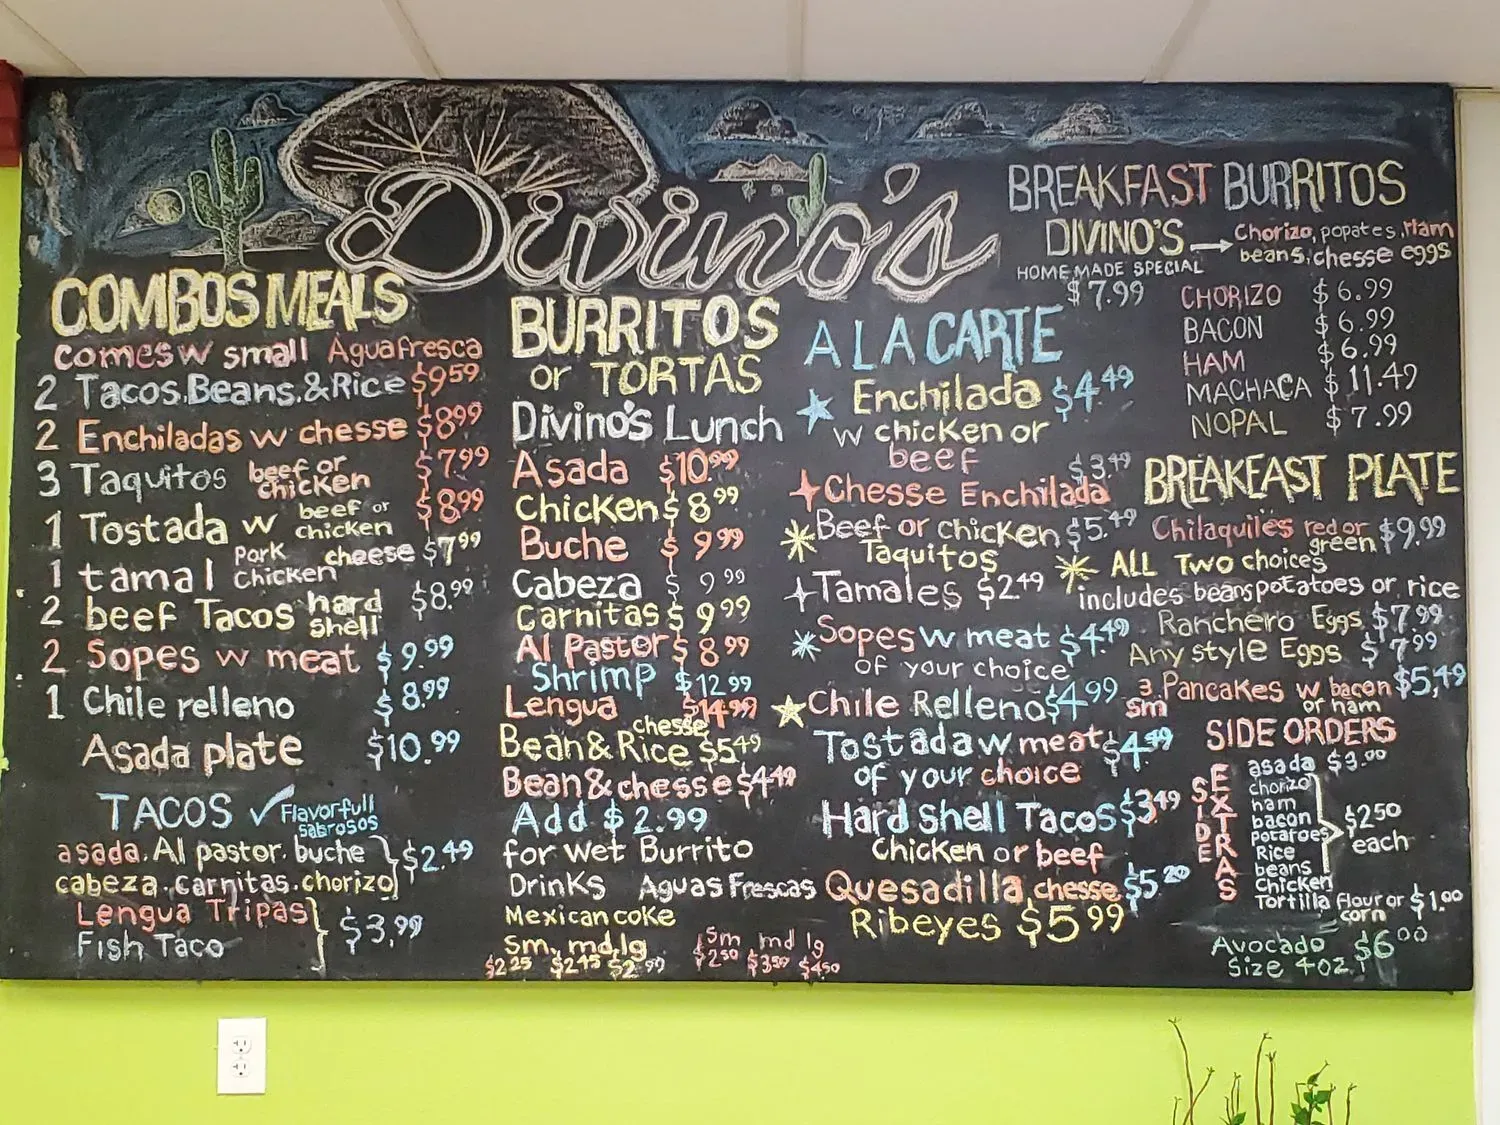 Divino's
COMBOS MEALS
comes w small Agua fresca
2 Tacos.Beans.&Rice $9.59
2 Enchiladas w chesse $8.99
3 Taquitos beef or chicken $7.99
1 Tostada w beef or chicken $8.99
1 tamal Pork chicken cheese $7.99
2 beef Tacos hard shell $8.99
2 Sopes w meat $9.99
1 Chile relleno $8.99
Asada plate $10.99
TACOS ✓ Flavor-full sabrosos
asada. Al pastor. buche
cabeza.carnitas.chorizo $2.49
Lengua Tripas
Fish Taco $3.99
BURRITOS
or TORTAS
Divino's Lunch
Asada $10.99
Chicken $8.99
Buche $9.99
Cabeza $9.99
Carnitas $9.99
Al Pastor $8.99
Shrimp $12.99
Lengua $14.99
Bean & Rice chesse $5.49
Bean & chesse $4.49
Add $2.99
for wet Burrito
Drinks Aguas Frescas
Mexican coke
sm, md, lg
$2.25 $2.45 $2.99
sm md lg
$2.50 $3.50 $4.50
A LA CARTE
Enchilada $4.49
w chicken or
beef
Chesse Enchilada $3.49
Beef or chicken $5.49
Taquitos
Tamales $2.49
Sopes w meat $4.49
of your choice
Chile Relleno $4.99
Tostada w meat $4.49
of your choice
Hard Shell Tacos $3.49
Chicken or beef
Quesadilla chesse $5.20
Ribeyes $5.99
BREAKFAST BURRITOS
DIVINO'S → Chorizo, popates, Ham
beans, chesse eggs
HOME MADE SPECIAL
$7.99
CHORIZO $6.99
BACON $6.99
HAM $6.99
MACHACA $11.49
NOPAL $7.99
BREAKFAST PLATE
Chilaquiles red or green $9.99
ALL Two choices
includes beans potatoes or rice
Ranchero Eggs $7.99
Any style Eggs $7.99
3 sm Pancakes w bacon or ham $5.49
SIDE ORDERS
SIDE EXTRAS
asada $3.00
chorizo
ham
bacon
potatoes
Rice
beans
Chicken
$2.50 each
Tortilla flour or corn $1.00
Avocado $6.00
Size 4oz